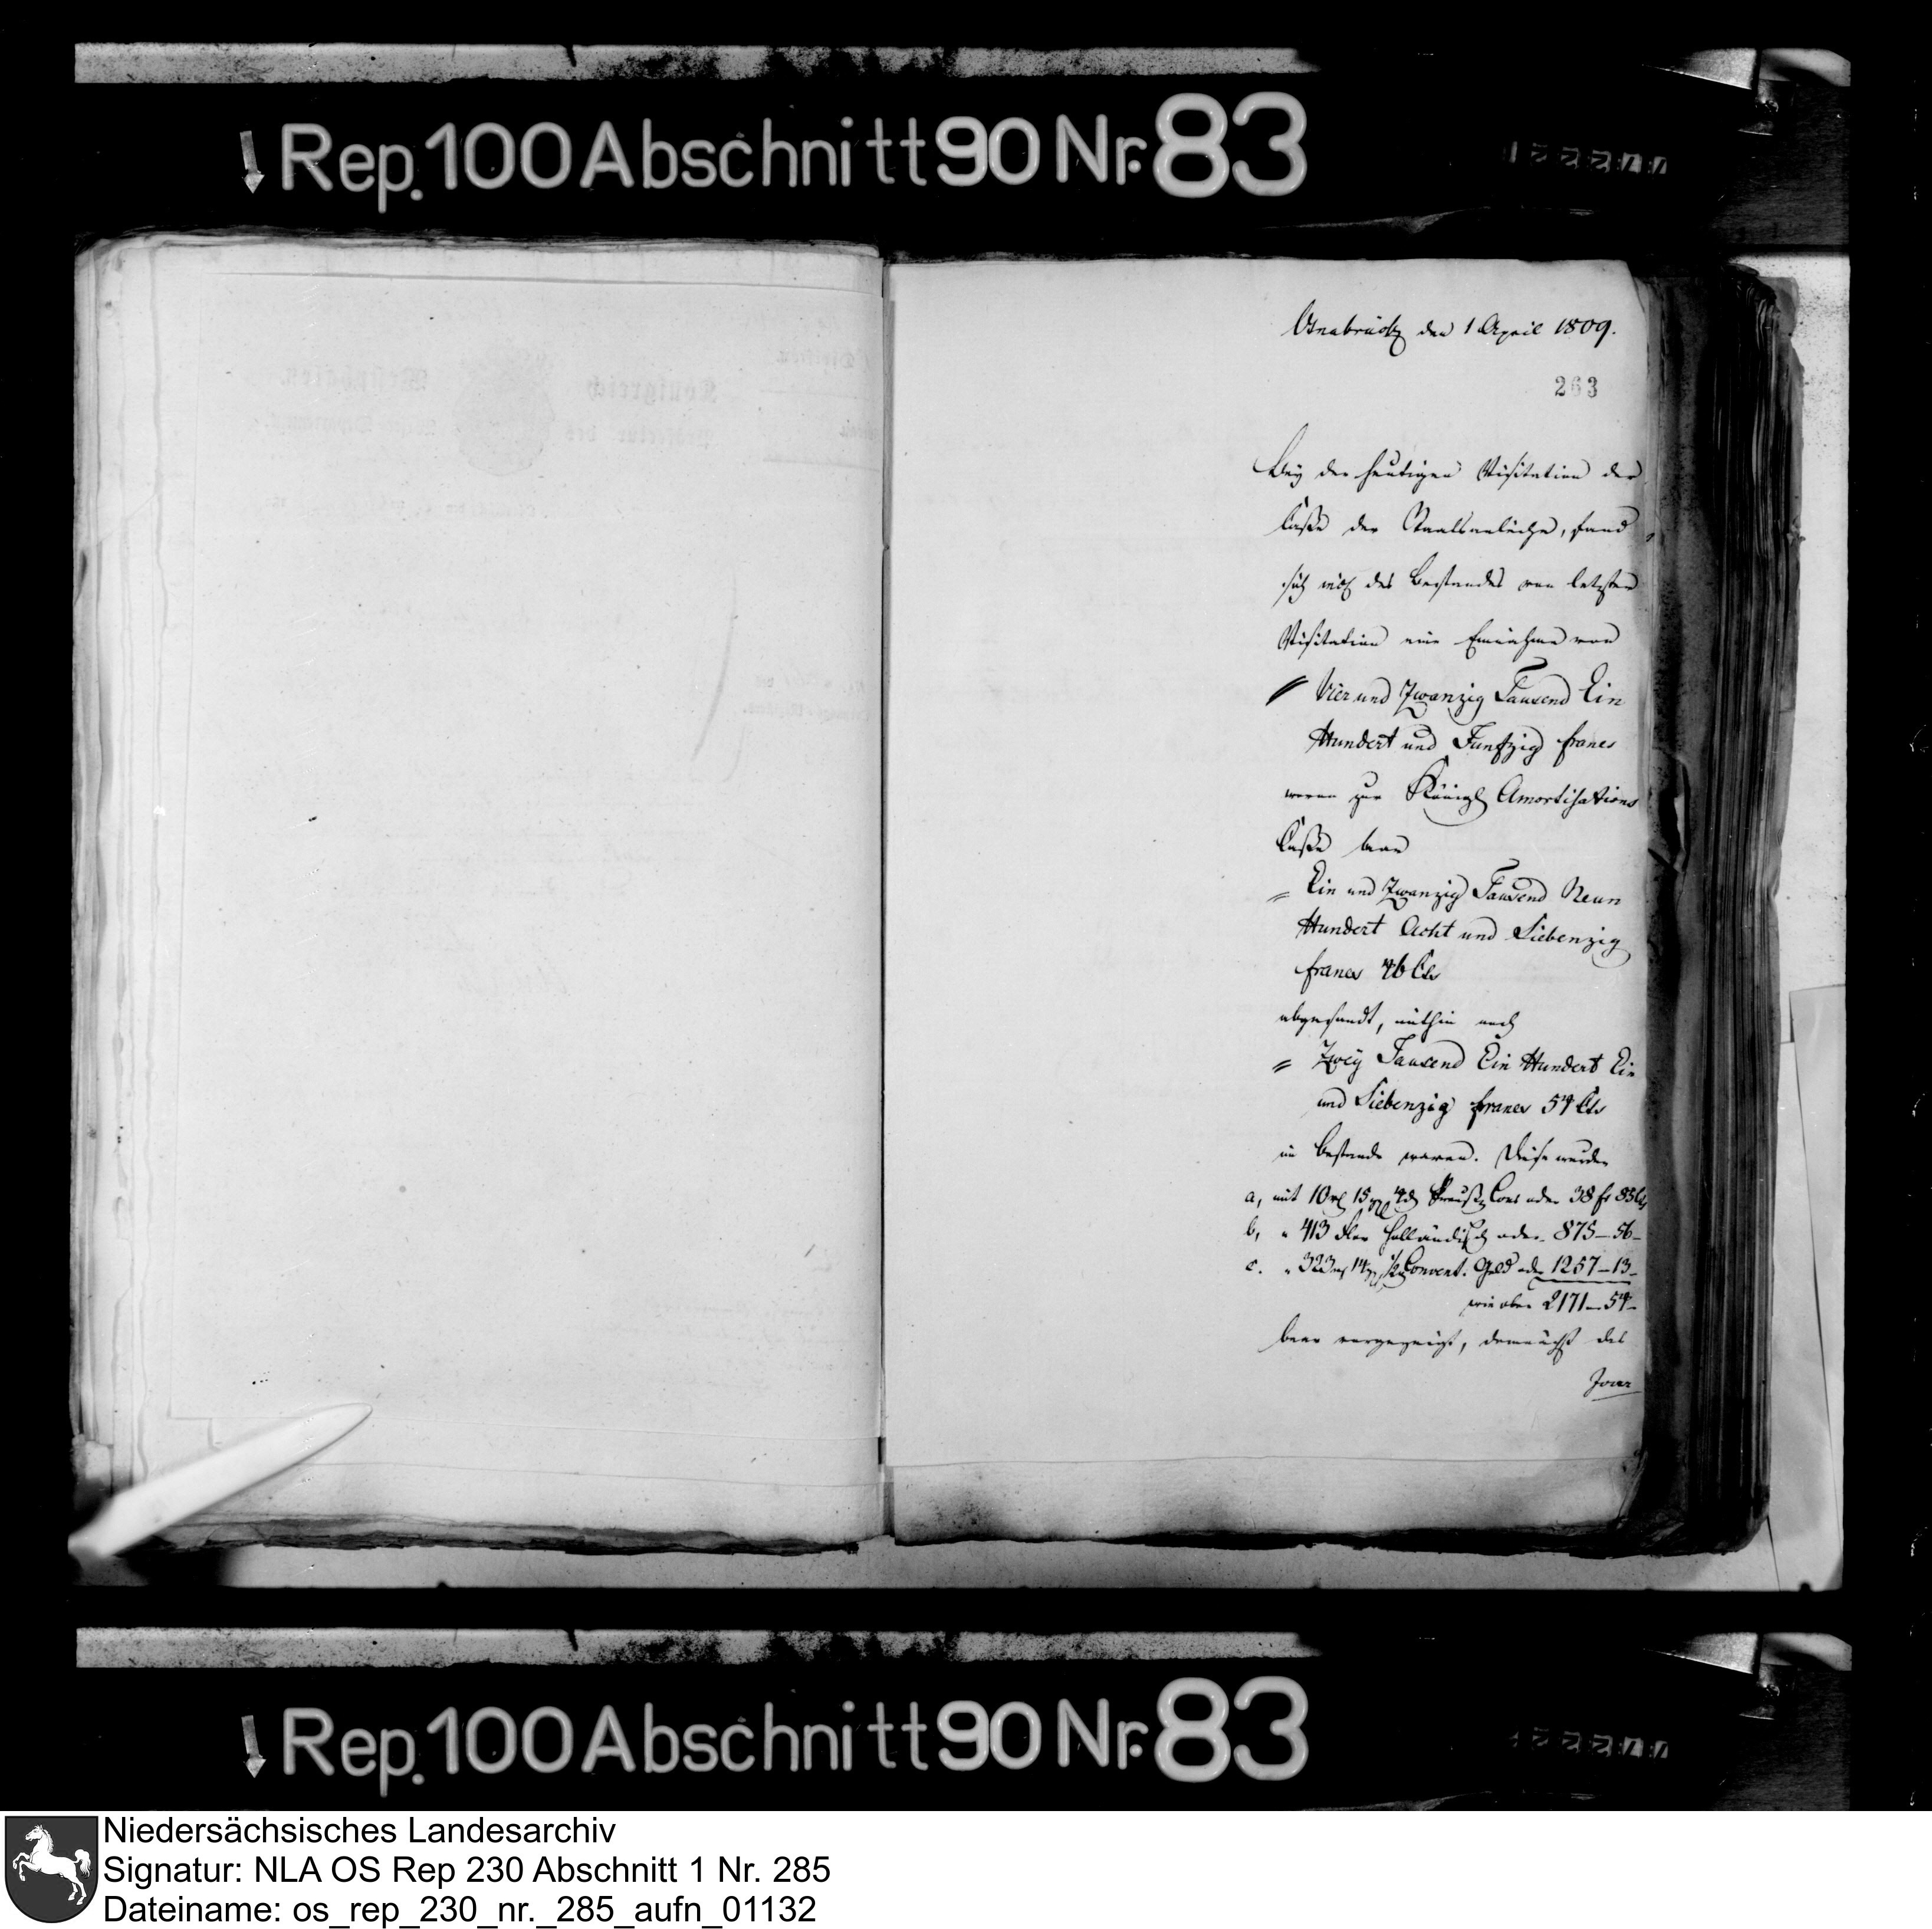 Rep. 100 Abschnitt 90 Nr. 83
Osnabrück den 1 April 1809.
263
Bey der heutigen Visitation der
Casse der Staatsanleihe, fand
sich incl des Bestandes von letzter
Visitation eine Einnahme von
Vier und Zwanzig Tausend Ein
Hundert und Funfzig francs
wovon zur Königl Amortisations
Casse baar
Ein und Zwanzig Tausend Neun
Hundert Acht und Siebenzig
francs 46 Cts
abgesandt, mithin noch
Zwey Tausend Ein Hundert Ein
und Siebenzig francs 54 Cts
in Bestande waren. Diese wurden
a, mit 10 rl 15 ggl 4 d Preuß Cour oder 38 fr 85 Cts
b, " 413 Flor Holländisch oder 875-56-
c. " 323 rl 14 ggl Convent. Geld oder 1257-13-
wie oben 2171-54-
baar vorgezeigt, demnächst das
Jour
Rep. 100 Abschnitt 90 Nr. 83
Niedersächsisches Landesarchiv
Signatur: NLA OS Rep 230 Abschnitt 1 Nr. 285
Dateiname: os_rep_230_nr._285_aufn_01132